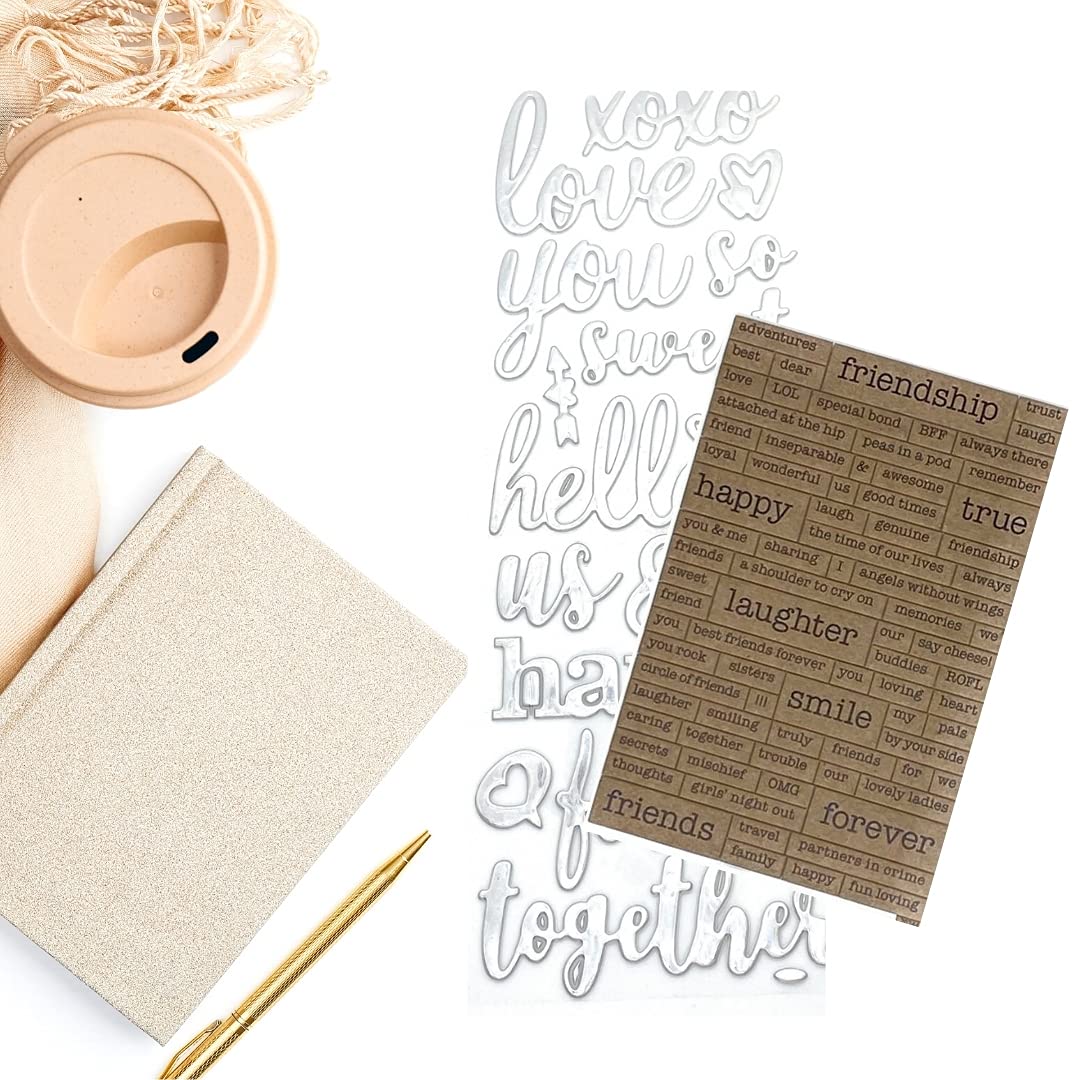 xoxo
love
you so
swe
hell
us &
ha
f
together
adventures
best dear friendship trust
love LOL special bond BFF laugh
attached at the hip peas in a pod always there
friend inseparable & awesome remember
loyal wonderful us good times
happy laugh genuine true
you & me the time of our lives friendship
friends sharing I angels without wings always
sweet a shoulder to cry on memories we
friend laughter our say cheese!
you best friends forever buddies ROFL
you rock sisters you loving heart
circle of friends !!! smile my pals
laughter smiling truly by your side
caring together trouble friends for we
secrets mischief OMG our lovely ladies
thoughts girls' night out forever
friends travel partners in crime
family happy fun loving